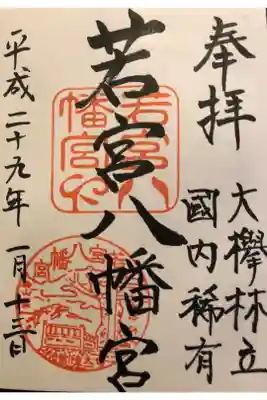 奉拝
大欅林立
國内稀有
若宮八幡宮
平成二十九年一月十三日
若宮八幡宮